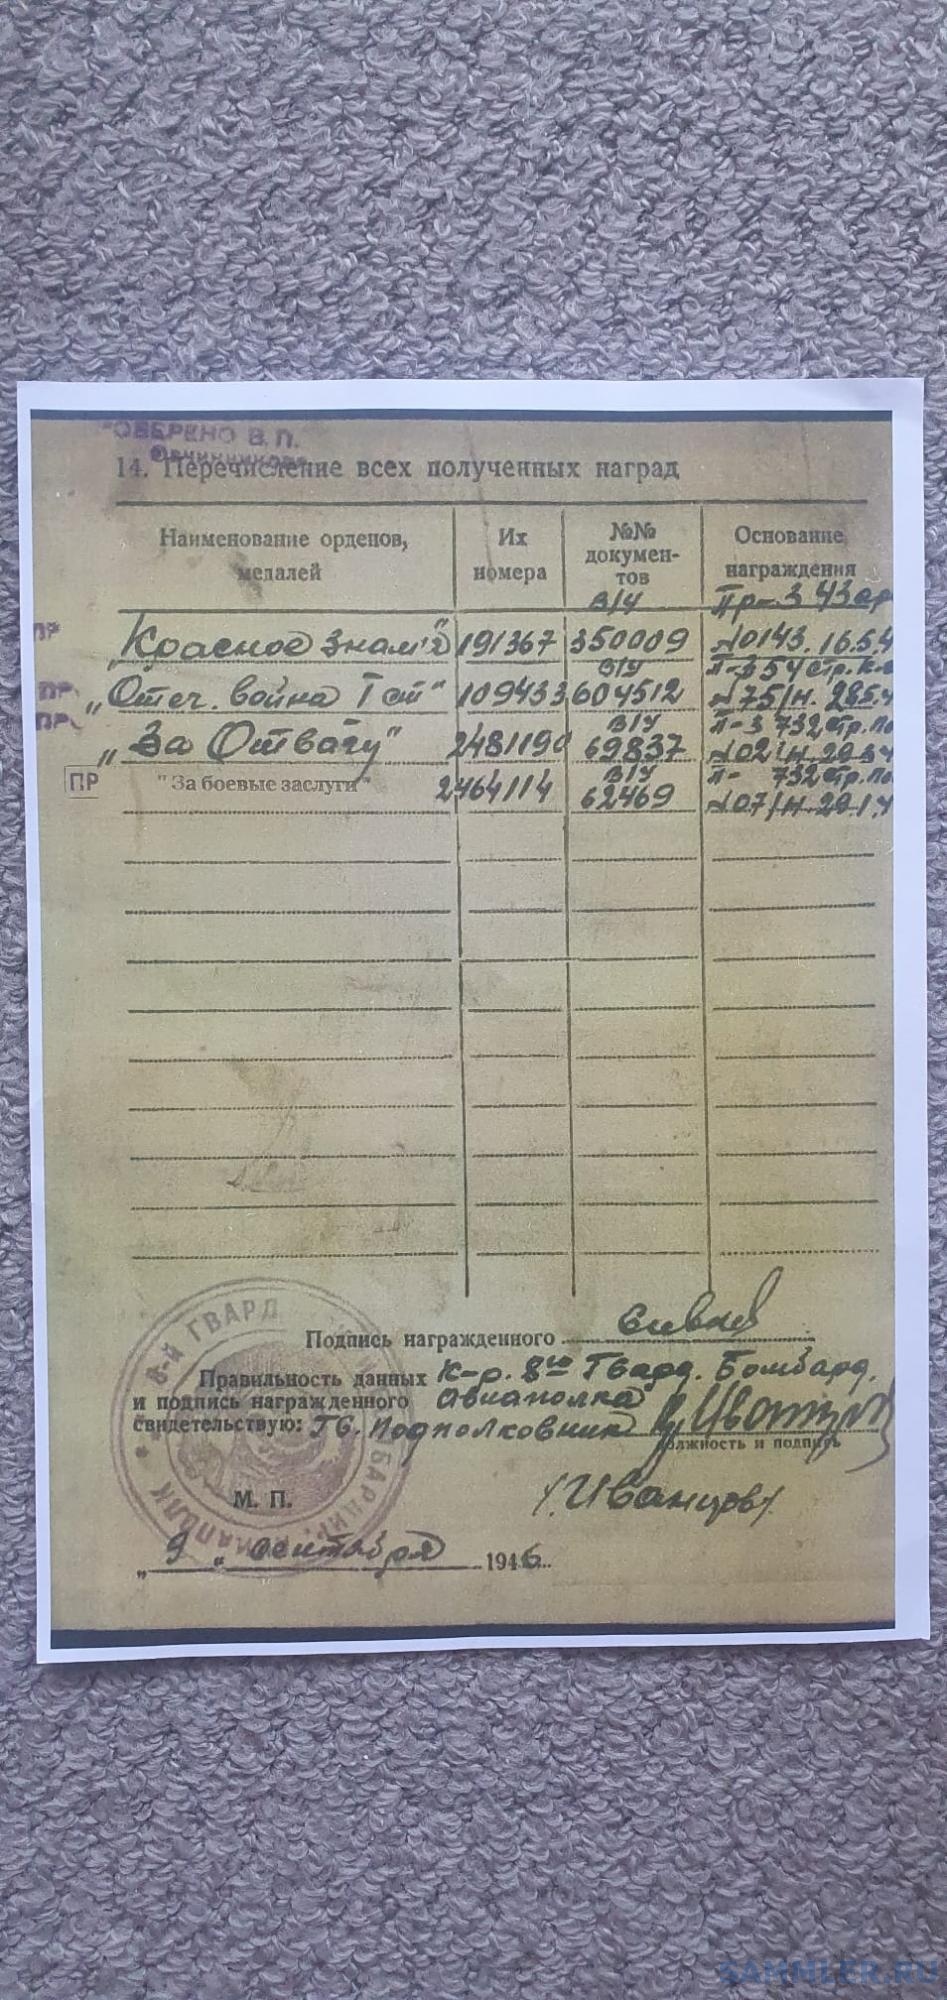 ОВЕРЕНО В. П.
Овчинникова
14. Перечисление всех полученных наград
Наименование орденов, медалей
Их номера
№№ документов
Основание награждения
ПР
„Красное Знамя" 191367 В/У 350009 Пр-3 43 ср №0143. 16.5.4
ПР
„Отеч. война I ст" 109433 В/У 604512 П-3 54 стр. к. №75/н. 28.5.4
ПР
„За Отвагу" 2481190 В/У 69837 П-3 732 стр. по №02/н.
ПР "За боевые заслуги" 2464114 В/У 62469 П- 732 стр. по №07/н. 20.1.4
Подпись награжденного
Правильность данных К-р. 8го Гвард. Бомбард.
и подпись награжденного Авиаполка
свидетельствую: Гв. Подполковник
должность и подпись
/Иванцов/
М. П.
8-й ГВАРД БАРДИР. АВИАПОЛК
„ 9 „ сентября 1946
SAMMLER.RU